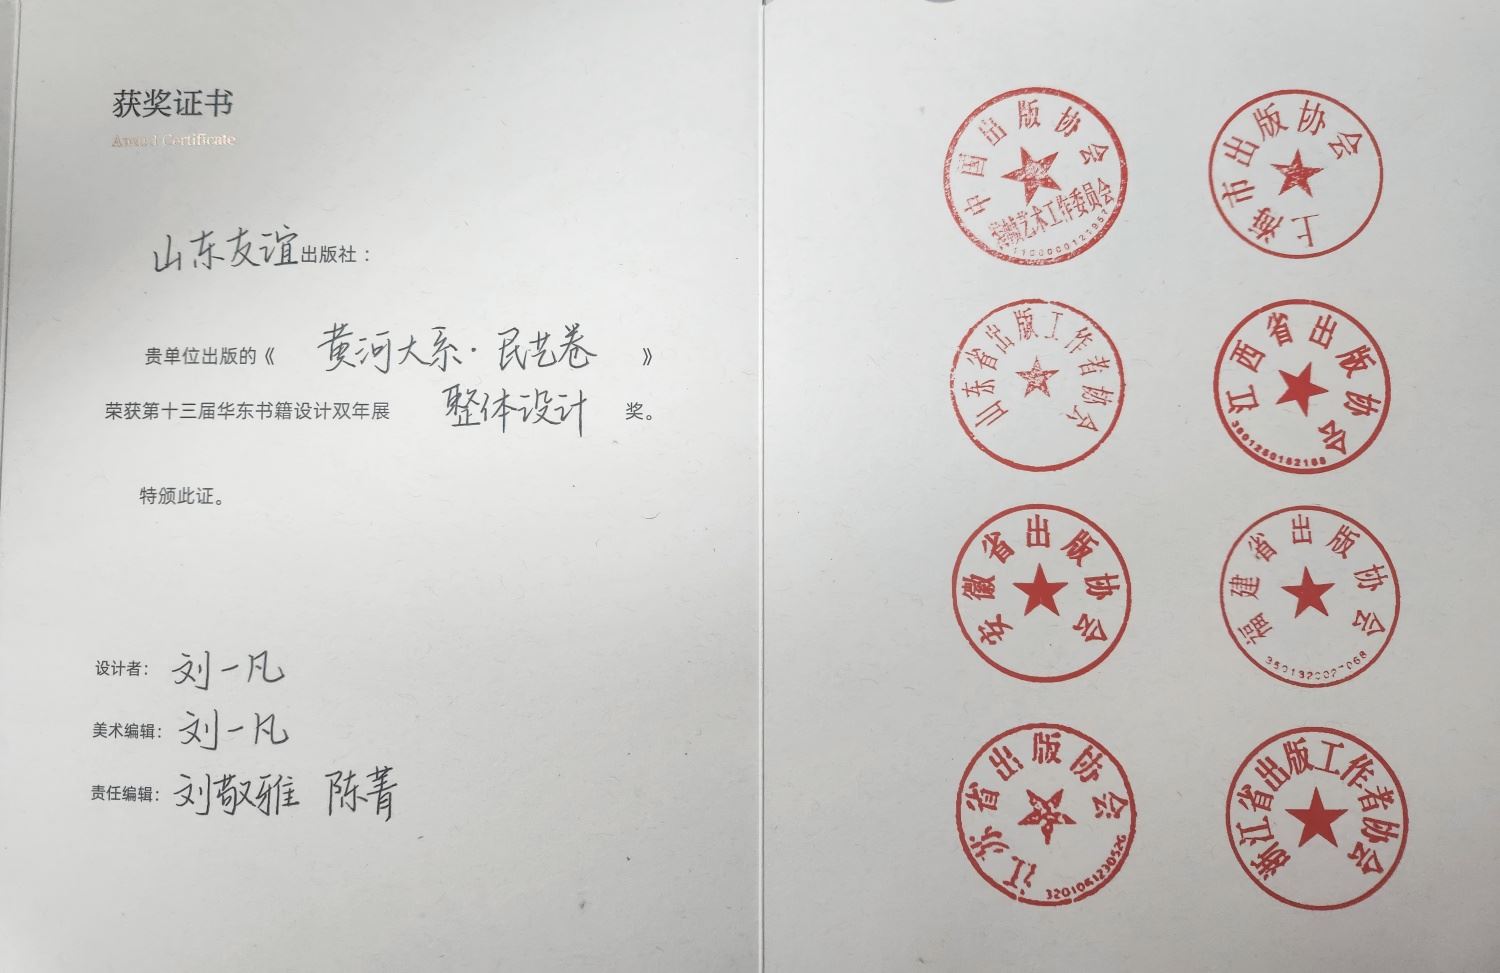 获奖证书
Award Certificate
山东友谊出版社：
贵单位出版的《 黄河大系·民艺卷 》
荣获第十三届华东书籍设计双年展 整体设计 奖。
特颁此证。
设计者：刘一凡
美术编辑：刘一凡
责任编辑：刘敬雅 陈菁
中国出版协会
装帧艺术工作委员会
上海市出版协会
山东省出版工作者协会
江西省出版协会
安徽省出版协会
福建省出版协会
江苏省出版协会
3201061230526
浙江省出版工作者协会